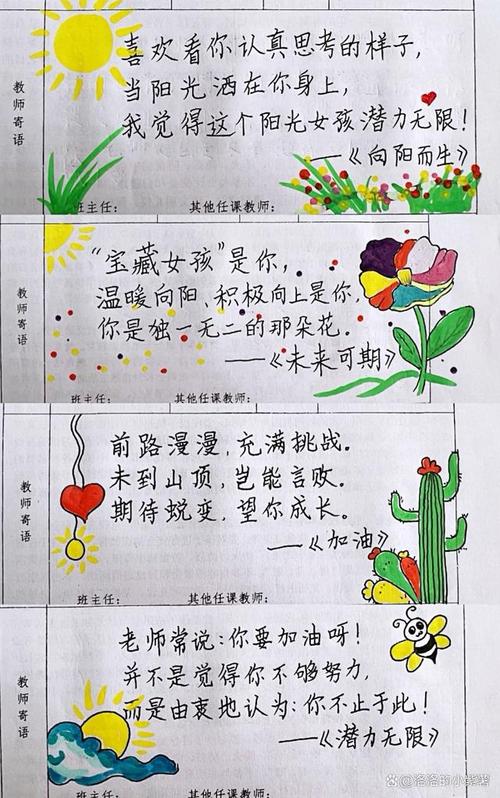 教师寄语
喜欢看你认真思考的样子,
当阳光洒在你身上,
我觉得这个阳光女孩潜力无限!
——《向阳而生》
班主任: 其他任课教师:
教师寄语
“宝藏女孩”是你,
温暖向阳、积极向上是你,
你是独一无二的那朵花。
——《未来可期》
班主任: 其他任课教师:
教师寄语
前路漫漫,充满挑战。
未到山顶,岂能言败。
期待蜕变,望你成长。
——《加油》
班主任: 其他任课教师:
教师寄语
老师常说:你要加油呀!
并不是觉得你不够努力,
而是由衷地认为:你不止于此!
——《潜力无限》